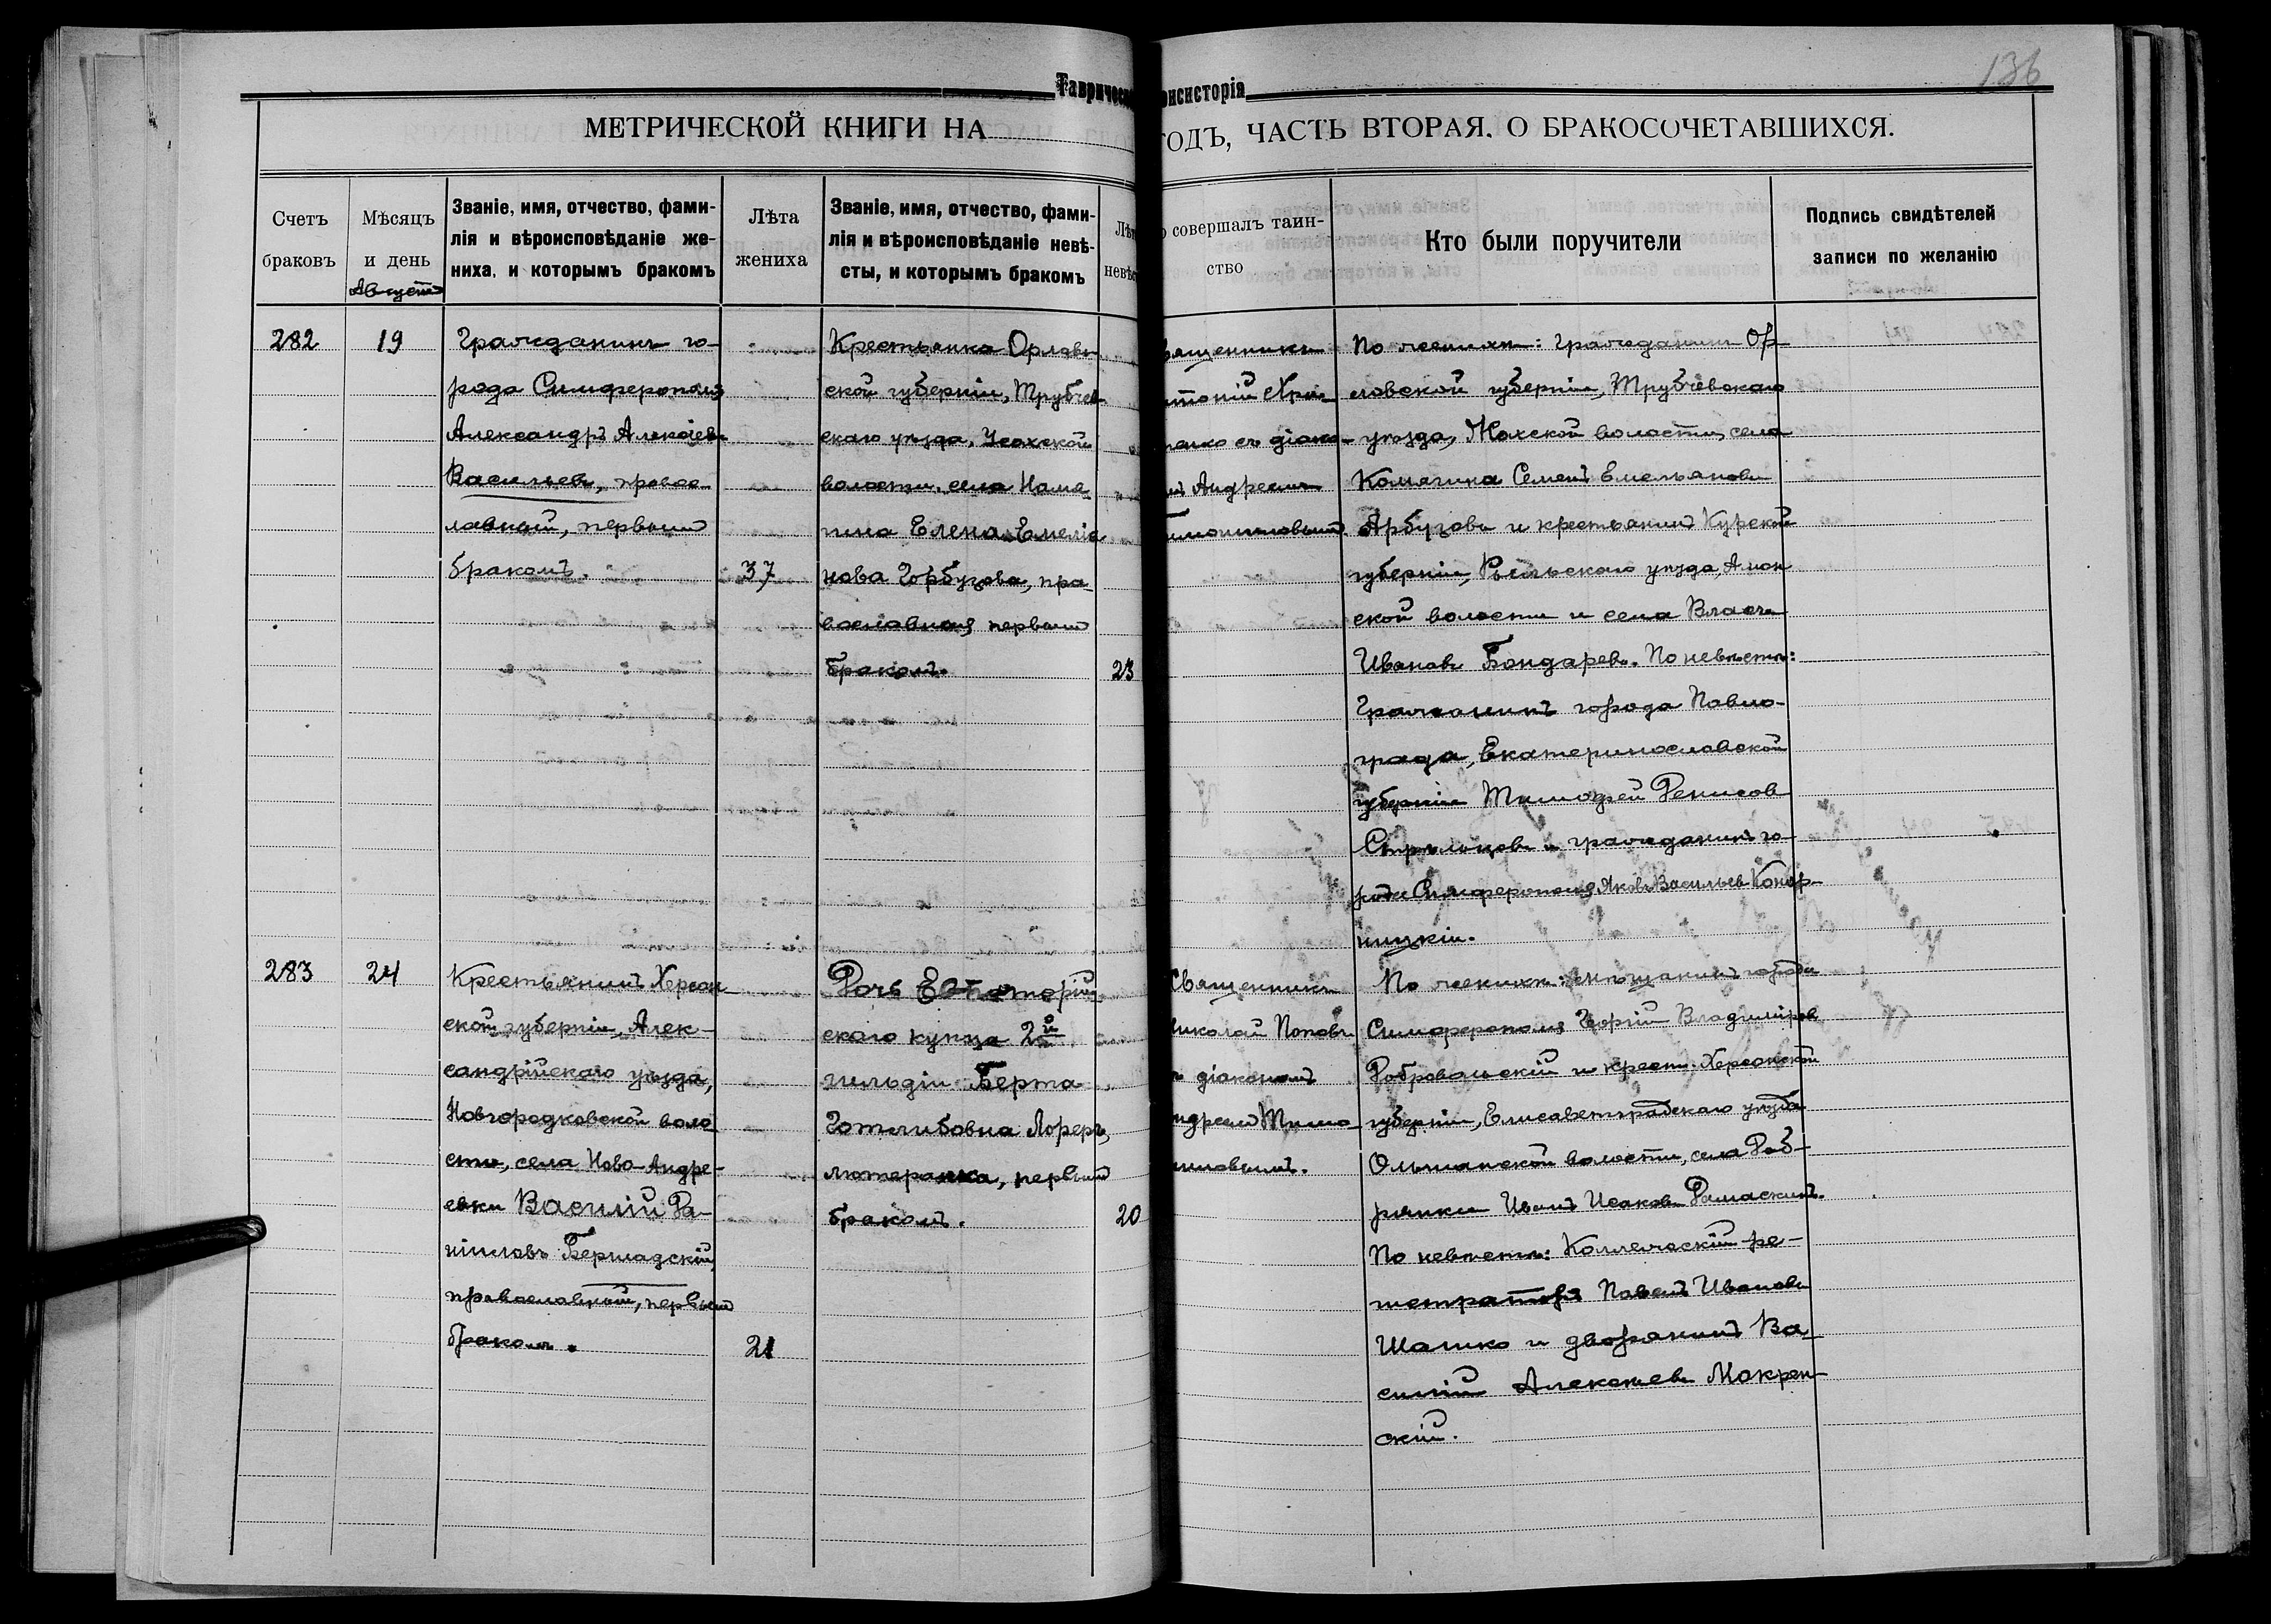 136
Таврическ
онсисторія
МЕТРИЧЕСКОЙ КНИГИ НА
ГОДЪ, ЧАСТЬ ВТОРАЯ. О БРАКОСОЧЕТАВШИХСЯ.
Счетъ браковъ
Мѣсяцъ и день
Августъ
Званіе, имя, отчество, фами-
лія и вѣроисповѣданіе же-
ниха, и которымъ бракомъ
Лѣта жениха
Званіе, имя, отчество, фами-
лія и вѣроисповѣданіе невѣ-
сты, и которымъ бракомъ
Лѣт
невѣс
о совершалъ таин-
ство
Кто были поручители
Подпись свидѣтелей
записи по желанію
282
19
Гражданинъ го-
рода Симферополя
Александръ Алексіевъ
Васильевъ, правос-
лавный, первымъ
бракомъ.
37
Крестьянка Орлов-
ской губерніи, Трубчев-
скаго уѣзда, Усохской
волости, села
Елена Емеліа
нова Горбузова, пра-
вославная первымъ
бракомъ.
23
вященникъ
нтоній
съ діако-
Андреемъ
По женихѣ: гражданинъ Ор-
ловской губерніи, Трубчевскаго
уѣзда, волости, села
Комягина Семенъ Емельяновъ
Арбузовъ и крестьянинъ Курской
губерніи, Рыльскаго уѣзда, Амон
ской волости и села Власъ
Ивановъ Бондаревъ. По невѣстѣ:
Гражданинъ города Павло-
града, Екатеринославской
губерніи Тимофей Денисов
Стрѣльцовъ и гражданинъ го-
рода Симферополя Яковъ Васильев
ницкій.
283
24
Крестьянинъ Херсон-
ской губерніи, Алек-
сандрійскаго уѣзда,
Новгородковской воло-
сти, села Ново-Андре-
евки Василій Да-
ніиловъ Бершадскій,
православный, первымъ
бракомъ.
21
Дочь Евпаторій
скаго купца 2й
гильдіи Берта
Готлибовна Лореръ,
лютеранка, первымъ
бракомъ.
20
Священникъ
Николай Поповъ
діакономъ
ндреемъ Тимо-
По женихѣ: мѣщанинъ города
Симферополя Георгій Владиміров
Добровольскій и крест. Херсонской
губерніи, Елисаветградскаго уѣзда
Ольшанской волости, села Доб-
рянки Иванъ Исаковъ Дамаскинъ.
По невѣстѣ: Коллежскій ре-
гистраторъ Павелъ Ивановъ
Шашко и дворянинъ Ва-
силій Алексѣевъ Мокрен-
скій.